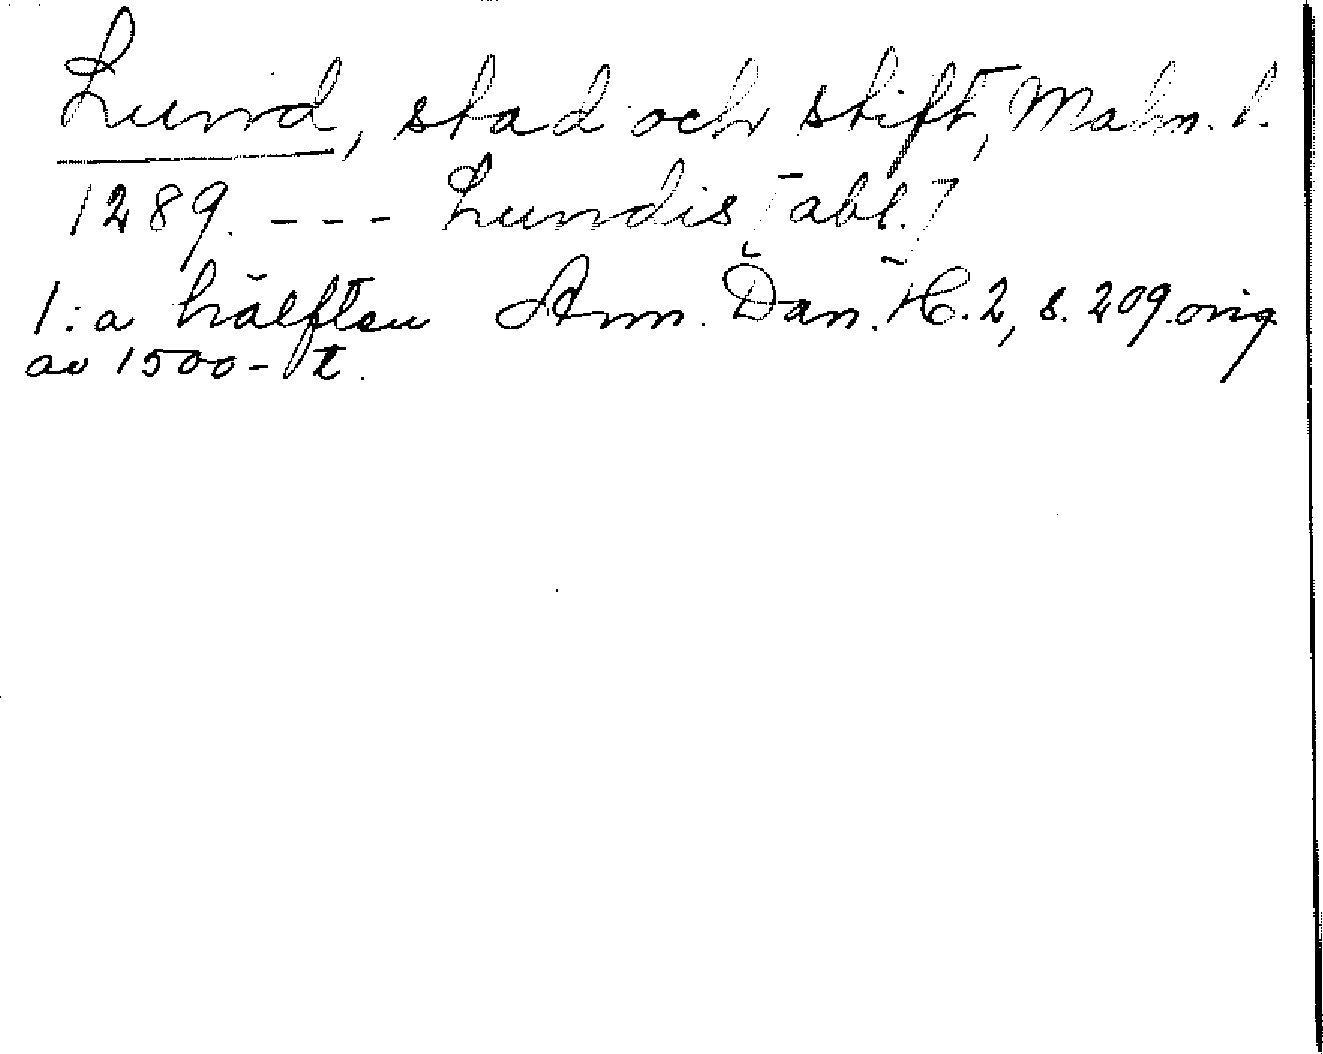 Lund, stad och stift, Malm. l.
1289. - - - Lundis [abl.]
1:a hälften Ann. Dan. H. 2, s. 209. orig.
av 1500-t.